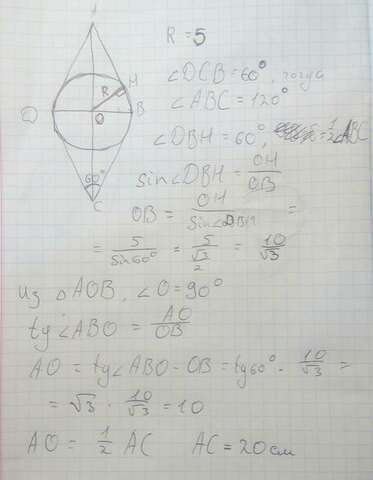 A
R = 5
R
H
D
O
B
60°
C
∠DCB = 60°, тогда
∠ABC = 120°
∠DBH = 60°, = 1/2 ∠ABC
sin∠DBH = OH/OB
OB = OH/sin∠DBH =
= 5/sin60° = 5/(√3/2) = 10/√3
из △AOB, ∠O = 90°
tg∠ABO = AO/OB
AO = tg∠ABO · OB = tg60° · 10/√3 =
= √3 · 10/√3 = 10
AO = 1/2 AC AC = 20см